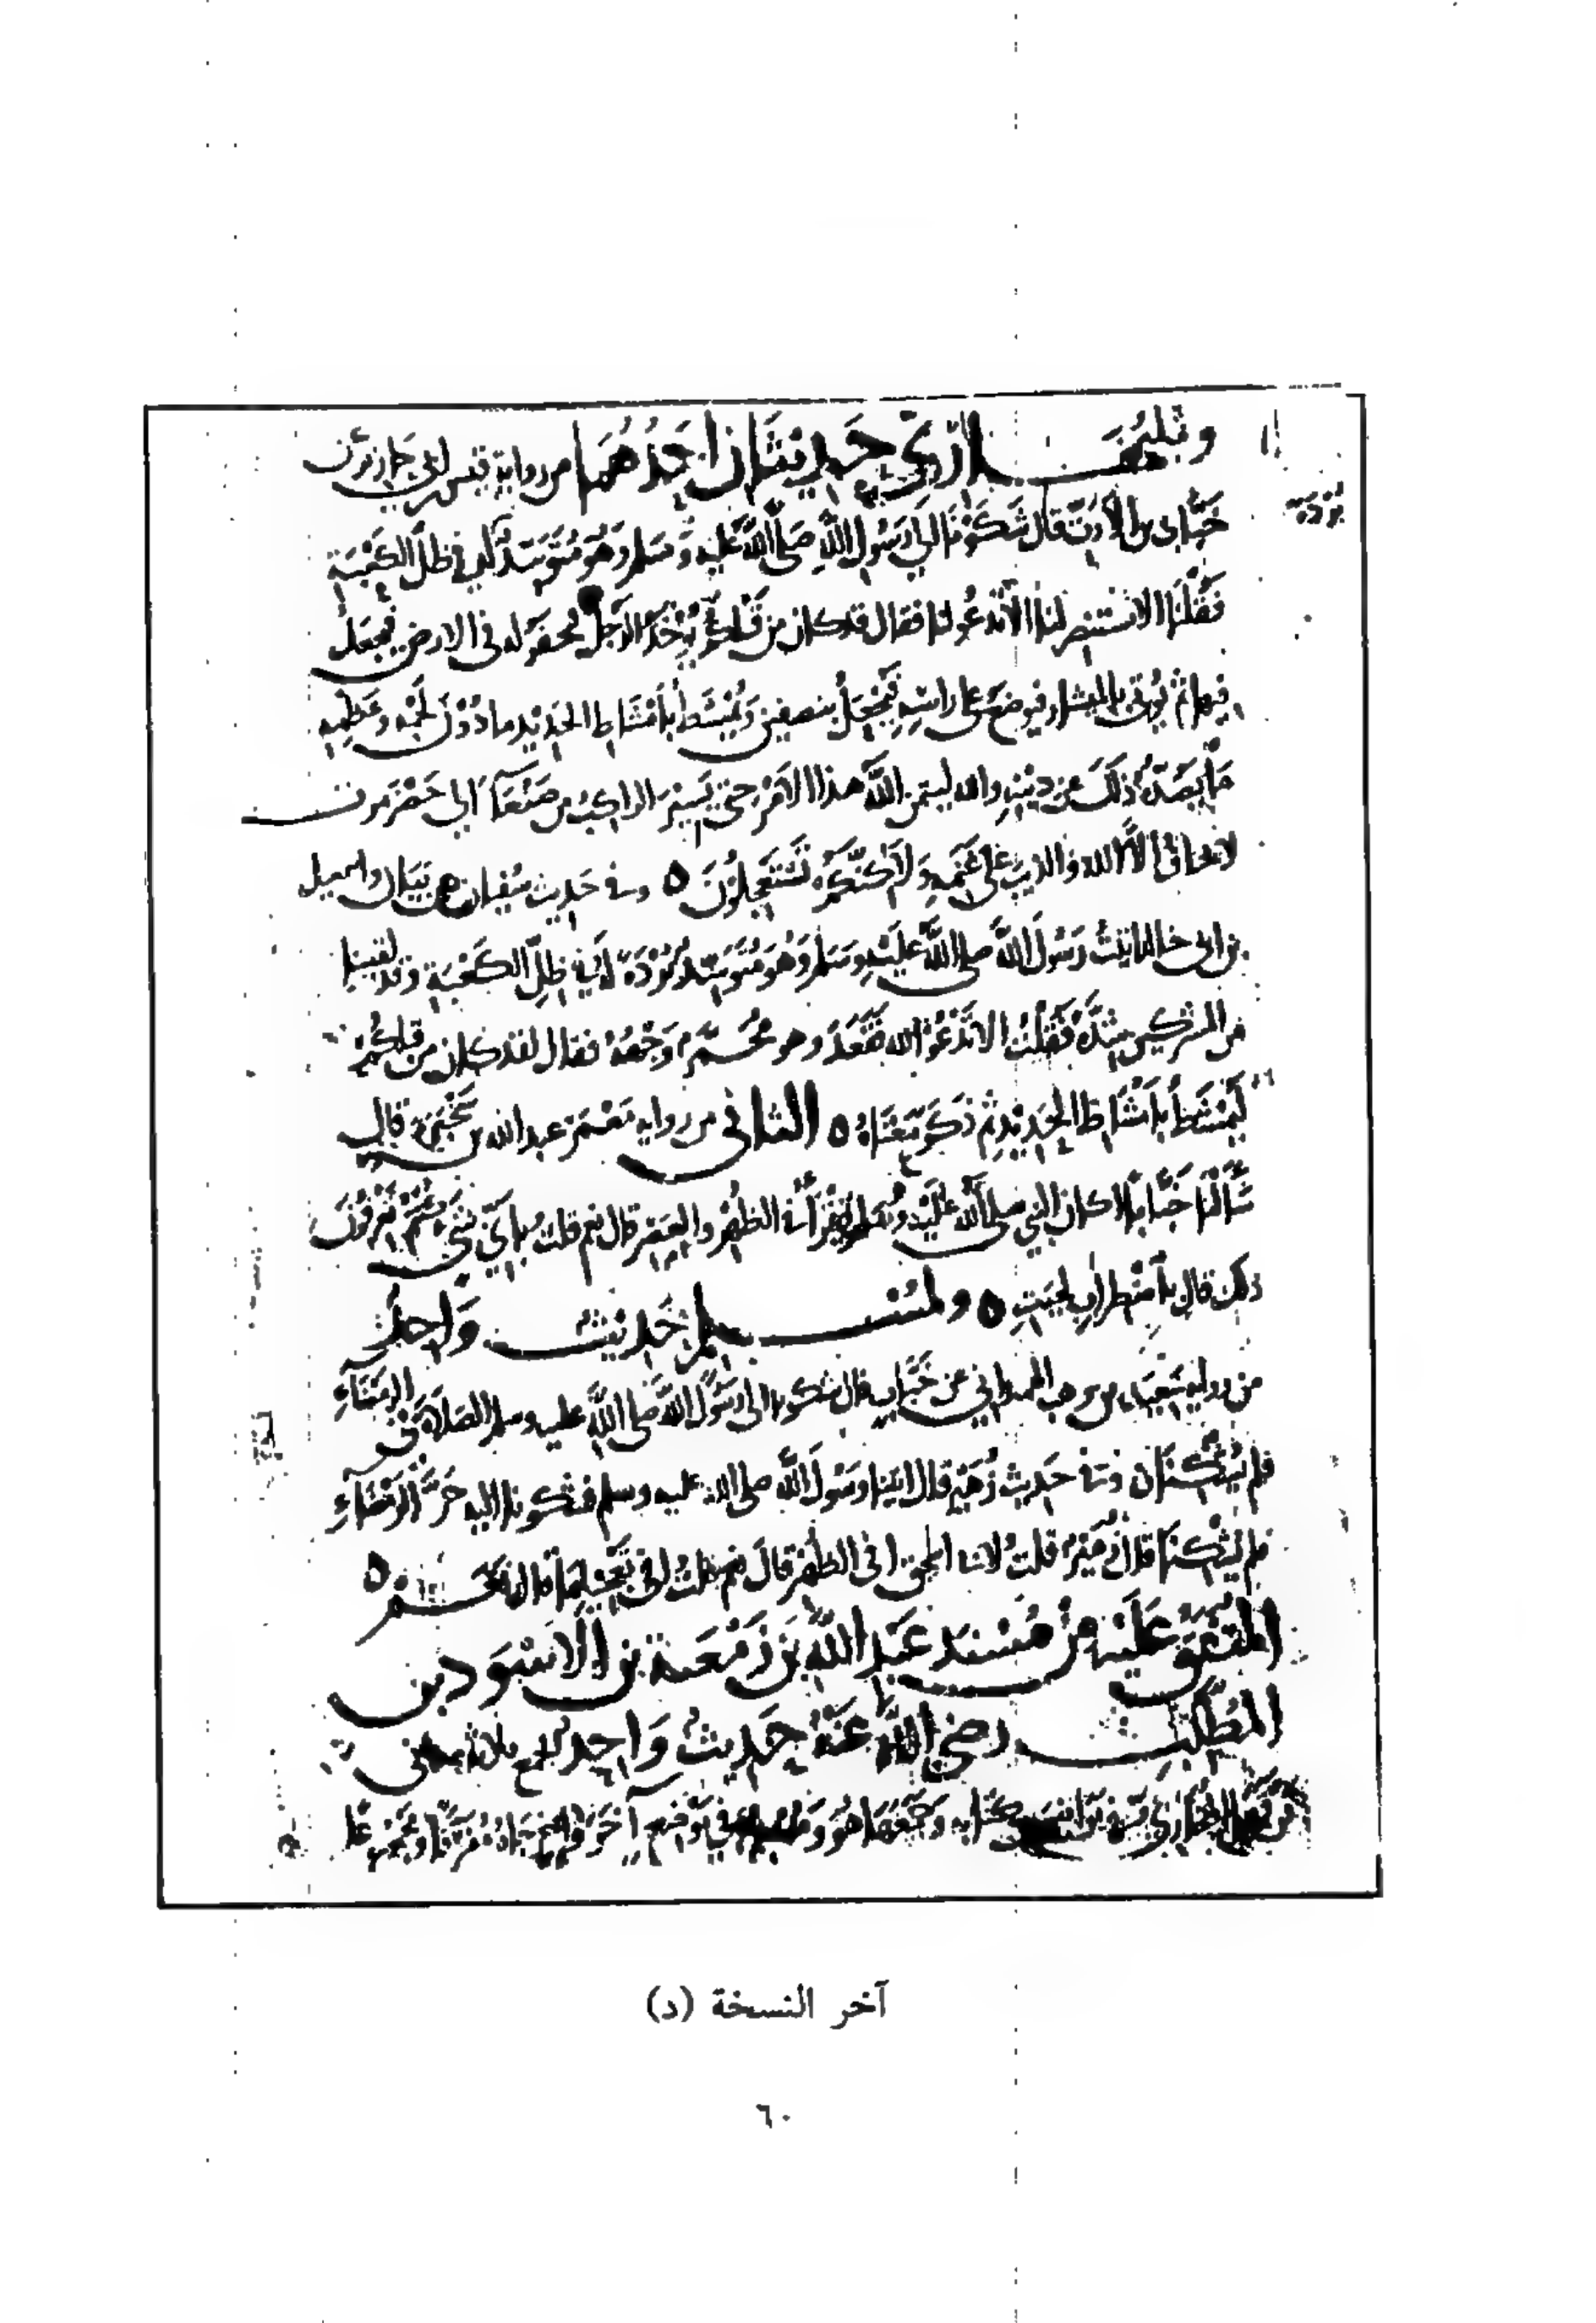 وللبخاري حديثان احدهما من رواية قيس بن ابي حازم عن
بردة
خباب بن الأرت قال شكونا الى رسول الله صلى الله عليه وسلم وهو متوسد في ظل الكعبة
فقلنا الا تستنصر لنا الا تدعو لنا فقال قد كان من قبلكم يؤخذ الرجل فيحفر له في الارض فيجعل
فيها ثم يؤتى بالميشار فيوضع على راسه فيجعل بنصفين ويمشط بأمشاط الحديد ما دون لحمه وعظمه
ما يصده ذلك عن دينه والله ليتمن الله هذا الامر حتى يسير الراكب من صنعآ الى حضرموت
لا يخاف الا الله والذيب على غنمه ولكنكم تستعجلون ٥ وفي حديث سفيان عن بيان واسمعيل
بن ابي خالد اتيت رسول الله صلى الله عليه وسلم وهو متوسد بردة في ظل الكعبة وقد لقينا
من المشركين شدة فقلت الا تدعو الله فقعد وهو محمر وجهه فقال لقد كان من قبلكم
ليمشط بامشاط الحديد ثم ذكر معناه ٥ الثاني من روايه معمر عبد الله بن سخبرة قال
سألنا خبابا اكان النبي صلى الله عليه وسلم يقرأ في الظهر والعصر قال نعم قلت باي شي كنتم تعرفون
ذلك قال باضطراب لحيته ٥ ولمسلم حديث واحد
من رواية سعيد بن وهب الهمداني عن خباب قال شكونا الى رسول الله صلى الله عليه وسلم الصلاة في الرمضاء
فلم يشكنا ٥ وفي حديث زهير قال اتينا رسول الله صلى الله عليه وسلم فشكونا اليه حر الرمضاء
فلم يشكنا قال زهير قلت لابي اسحق افي الظهر قال نعم قلت افي تعجيلها قال نعم ٥
المتفق عليه من مسند عبد الله بن زمعة بن الاسود بن
المطلب رضي الله عنه حديث واحد يجمع ثلاثة معاني
آخر النسخة (د)
٦٠